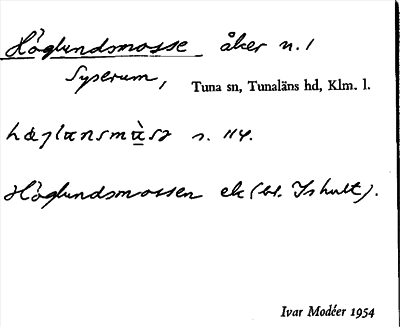 Höglundsmosse åker n. 1
Syserum, Tuna sn, Tunaläns hd, Klm. l.
s. 114.
Höglundsmossen ek (bl. Ishult).
Ivar Modéer 1954